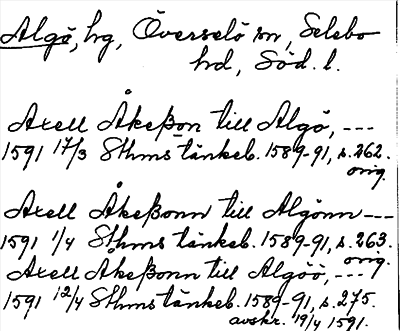 Algö, hg, Överselö sn, Selebo
hd, Söd. l.
Axell Åkeßon till Algö, ---
1591 17/3 Sthms tänkeb. 1589-91, s. 262.
orig.
Axell Åkeßonn till Algönn ---
1591 1/4 Sthms tänkeb. 1589-91, s. 263.
orig.
Axell Akeßonn till Algöö, ---
1591 12/4 Sthms tänkeb. 1589-91, s. 275.
avskr. 19/4 1591.